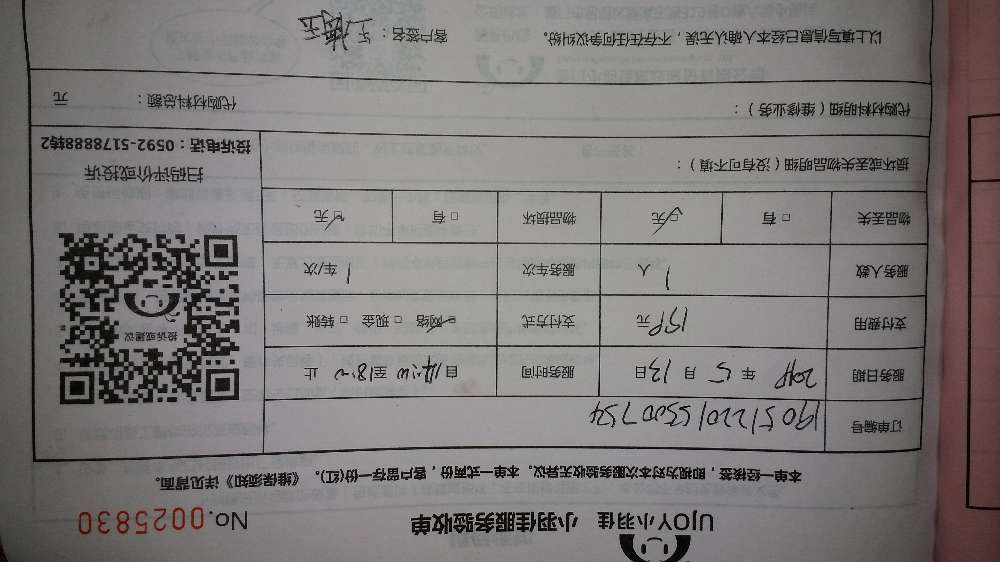 UjOY小羽佳 小羽佳服务验收单 No.0025830
本单一经核签，即视为对本次服务验收无异议。本单一式两份，客户留存一份(红)。《维保须知》详见背面。
订单编号 1905122015500754
服务日期 2019 年 5 月 13 日 服务时间 自 14:00 至 18:00 止
支付费用 159 元 支付方式 ☑ 网络 □ 现金 □ 转账
服务人数 1 人 服务车次 1 车/次
物品丢失 □ 有 ☑ 无 物品损坏 □ 有 ☑ 无
损坏或丢失物品明细（没有可不填）：
投诉或建议
扫码评价或投诉
投诉电话：0592-5178888转2
代购材料明细（维修业务）： 代购材料总额： 元
以上填写信息已经本人确认无误，不存在任何争议纠纷。 客户签名：